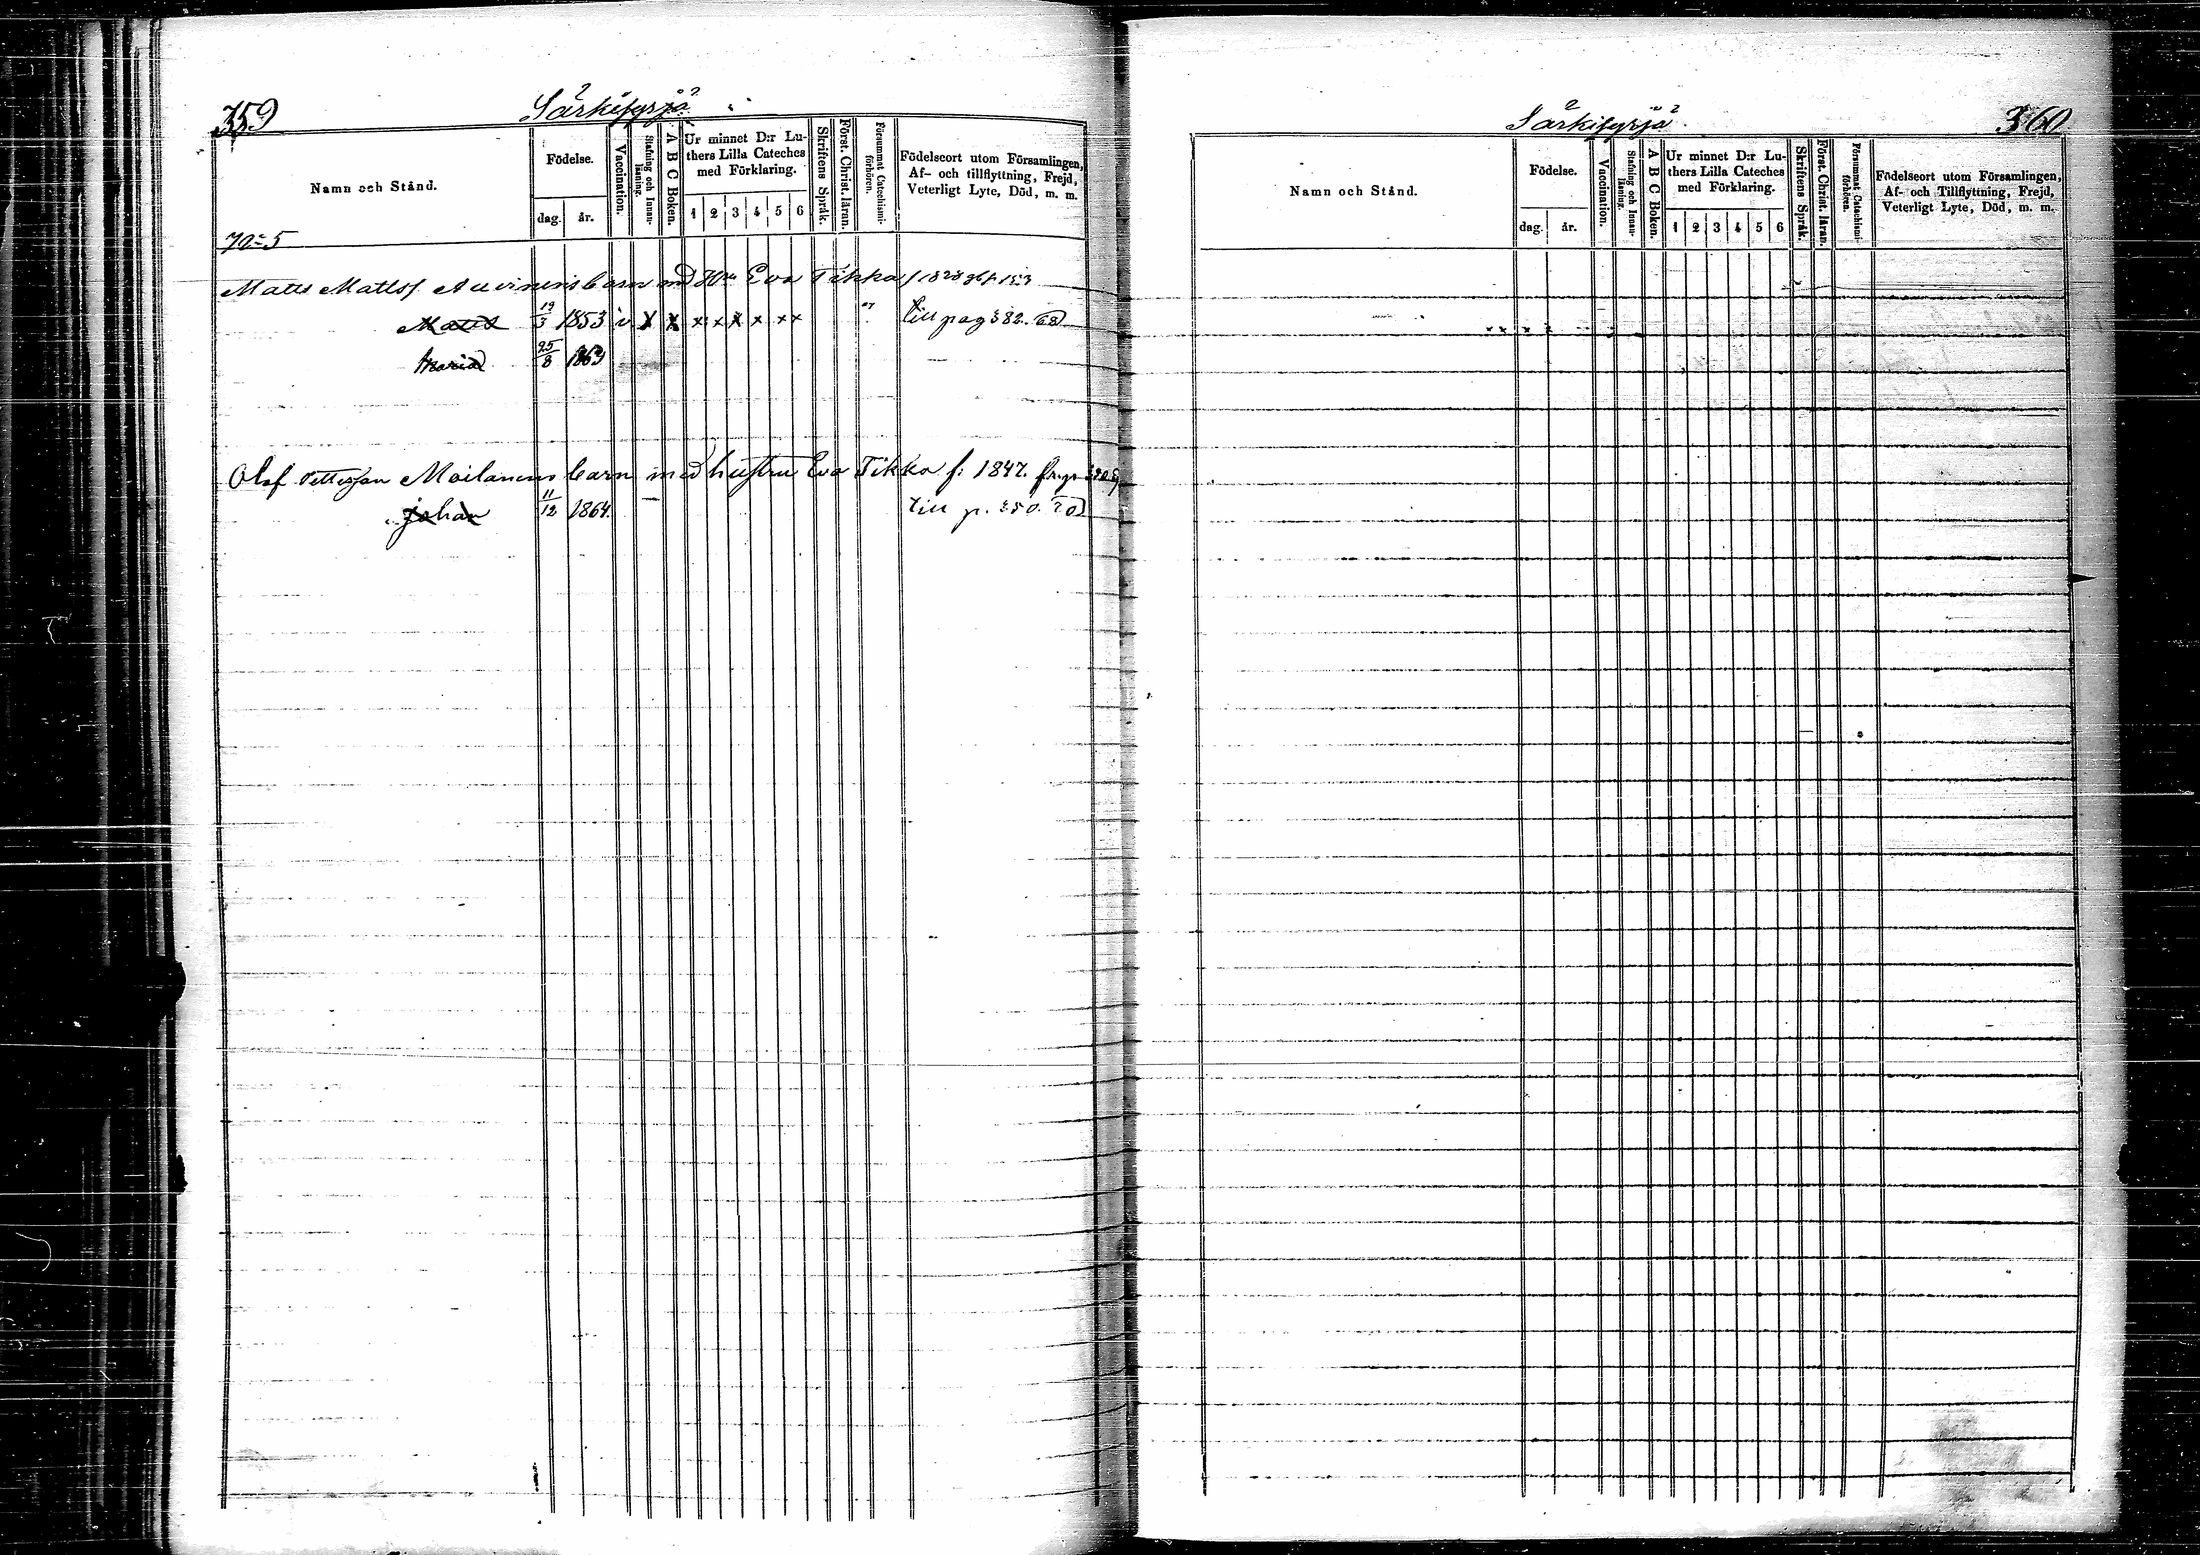 359
Särkisyrjä
Namn och Stånd.
Födelse.
dag.
år.
Vaccination.
Stafning och Innanläsning.
A B C Boken.
Ur minnet D:r Lu-
thers Lilla Cateches
med Förklaring.
1 2 3 4 5 6
Skriftens Språk.
Först. Christ. läran.
Försummat Catechismi-
förhören.
Födelseort utom Församlingen,
Af- och tillflyttning, Frejd,
Veterligt Lyte, Död, m. m.
70 = 5
Matts Mattss Auvinens barn med Hru Eva Tikka f 1828
Matts 19/3 1853 v X X x x x x x x till pag 382. 68
Maria 25/8 1863
Olof Pettersson Moilanens barn med hustru Eva Tikka f: 1847.
Johan 11/12 1864. till p. 350. 70
Särkisyrjä
360
Namn och Stånd.
Födelse.
dag.
år.
Vaccination.
Stafning och Innanläsning.
A B C Boken.
Ur minnet D:r Lu-
thers Lilla Cateches
med Förklaring.
1 2 3 4 5 6
Skriftens Språk.
Först. Christ. läran.
Försummat Catechismi-
förhören.
Födelseort utom Församlingen,
Af- och Tillflyttning, Frejd,
Veterligt Lyte, Död, m. m.